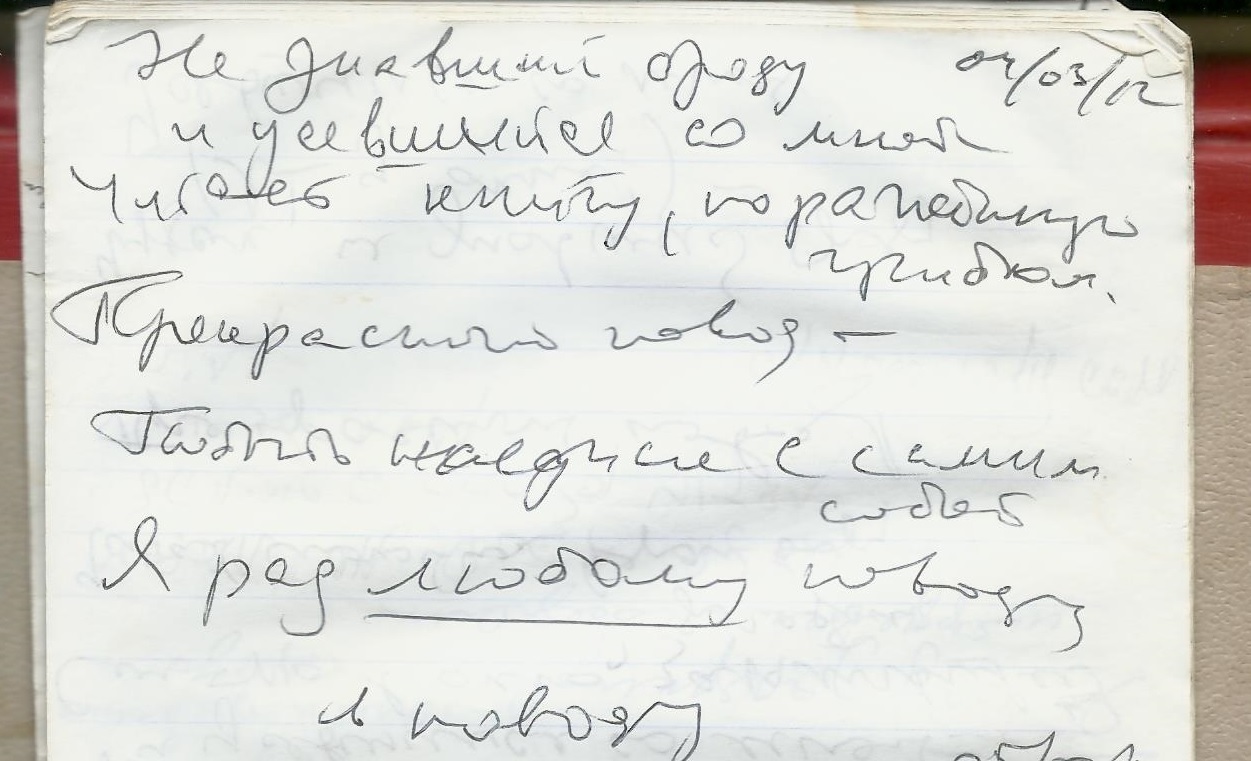 Не знавший броду 04/03/12
и усевшийся со мной
Читать книгу, пораженную
грибком.
Прекрасный повод –
Побыть наедине с самим
собой
Я рад любому поводу
и поводу